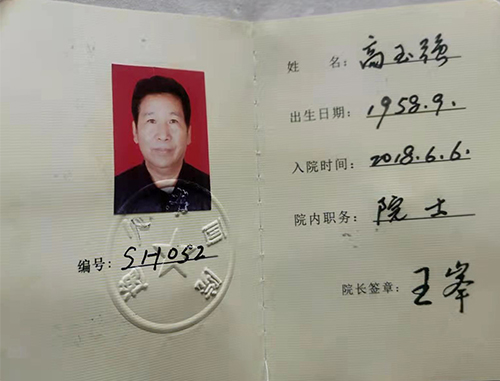 编号：SH052
姓 名：高玉强
出生日期：1958.9.
入院时间：2018.6.6.
院内职务：院士
院长签章：王峯